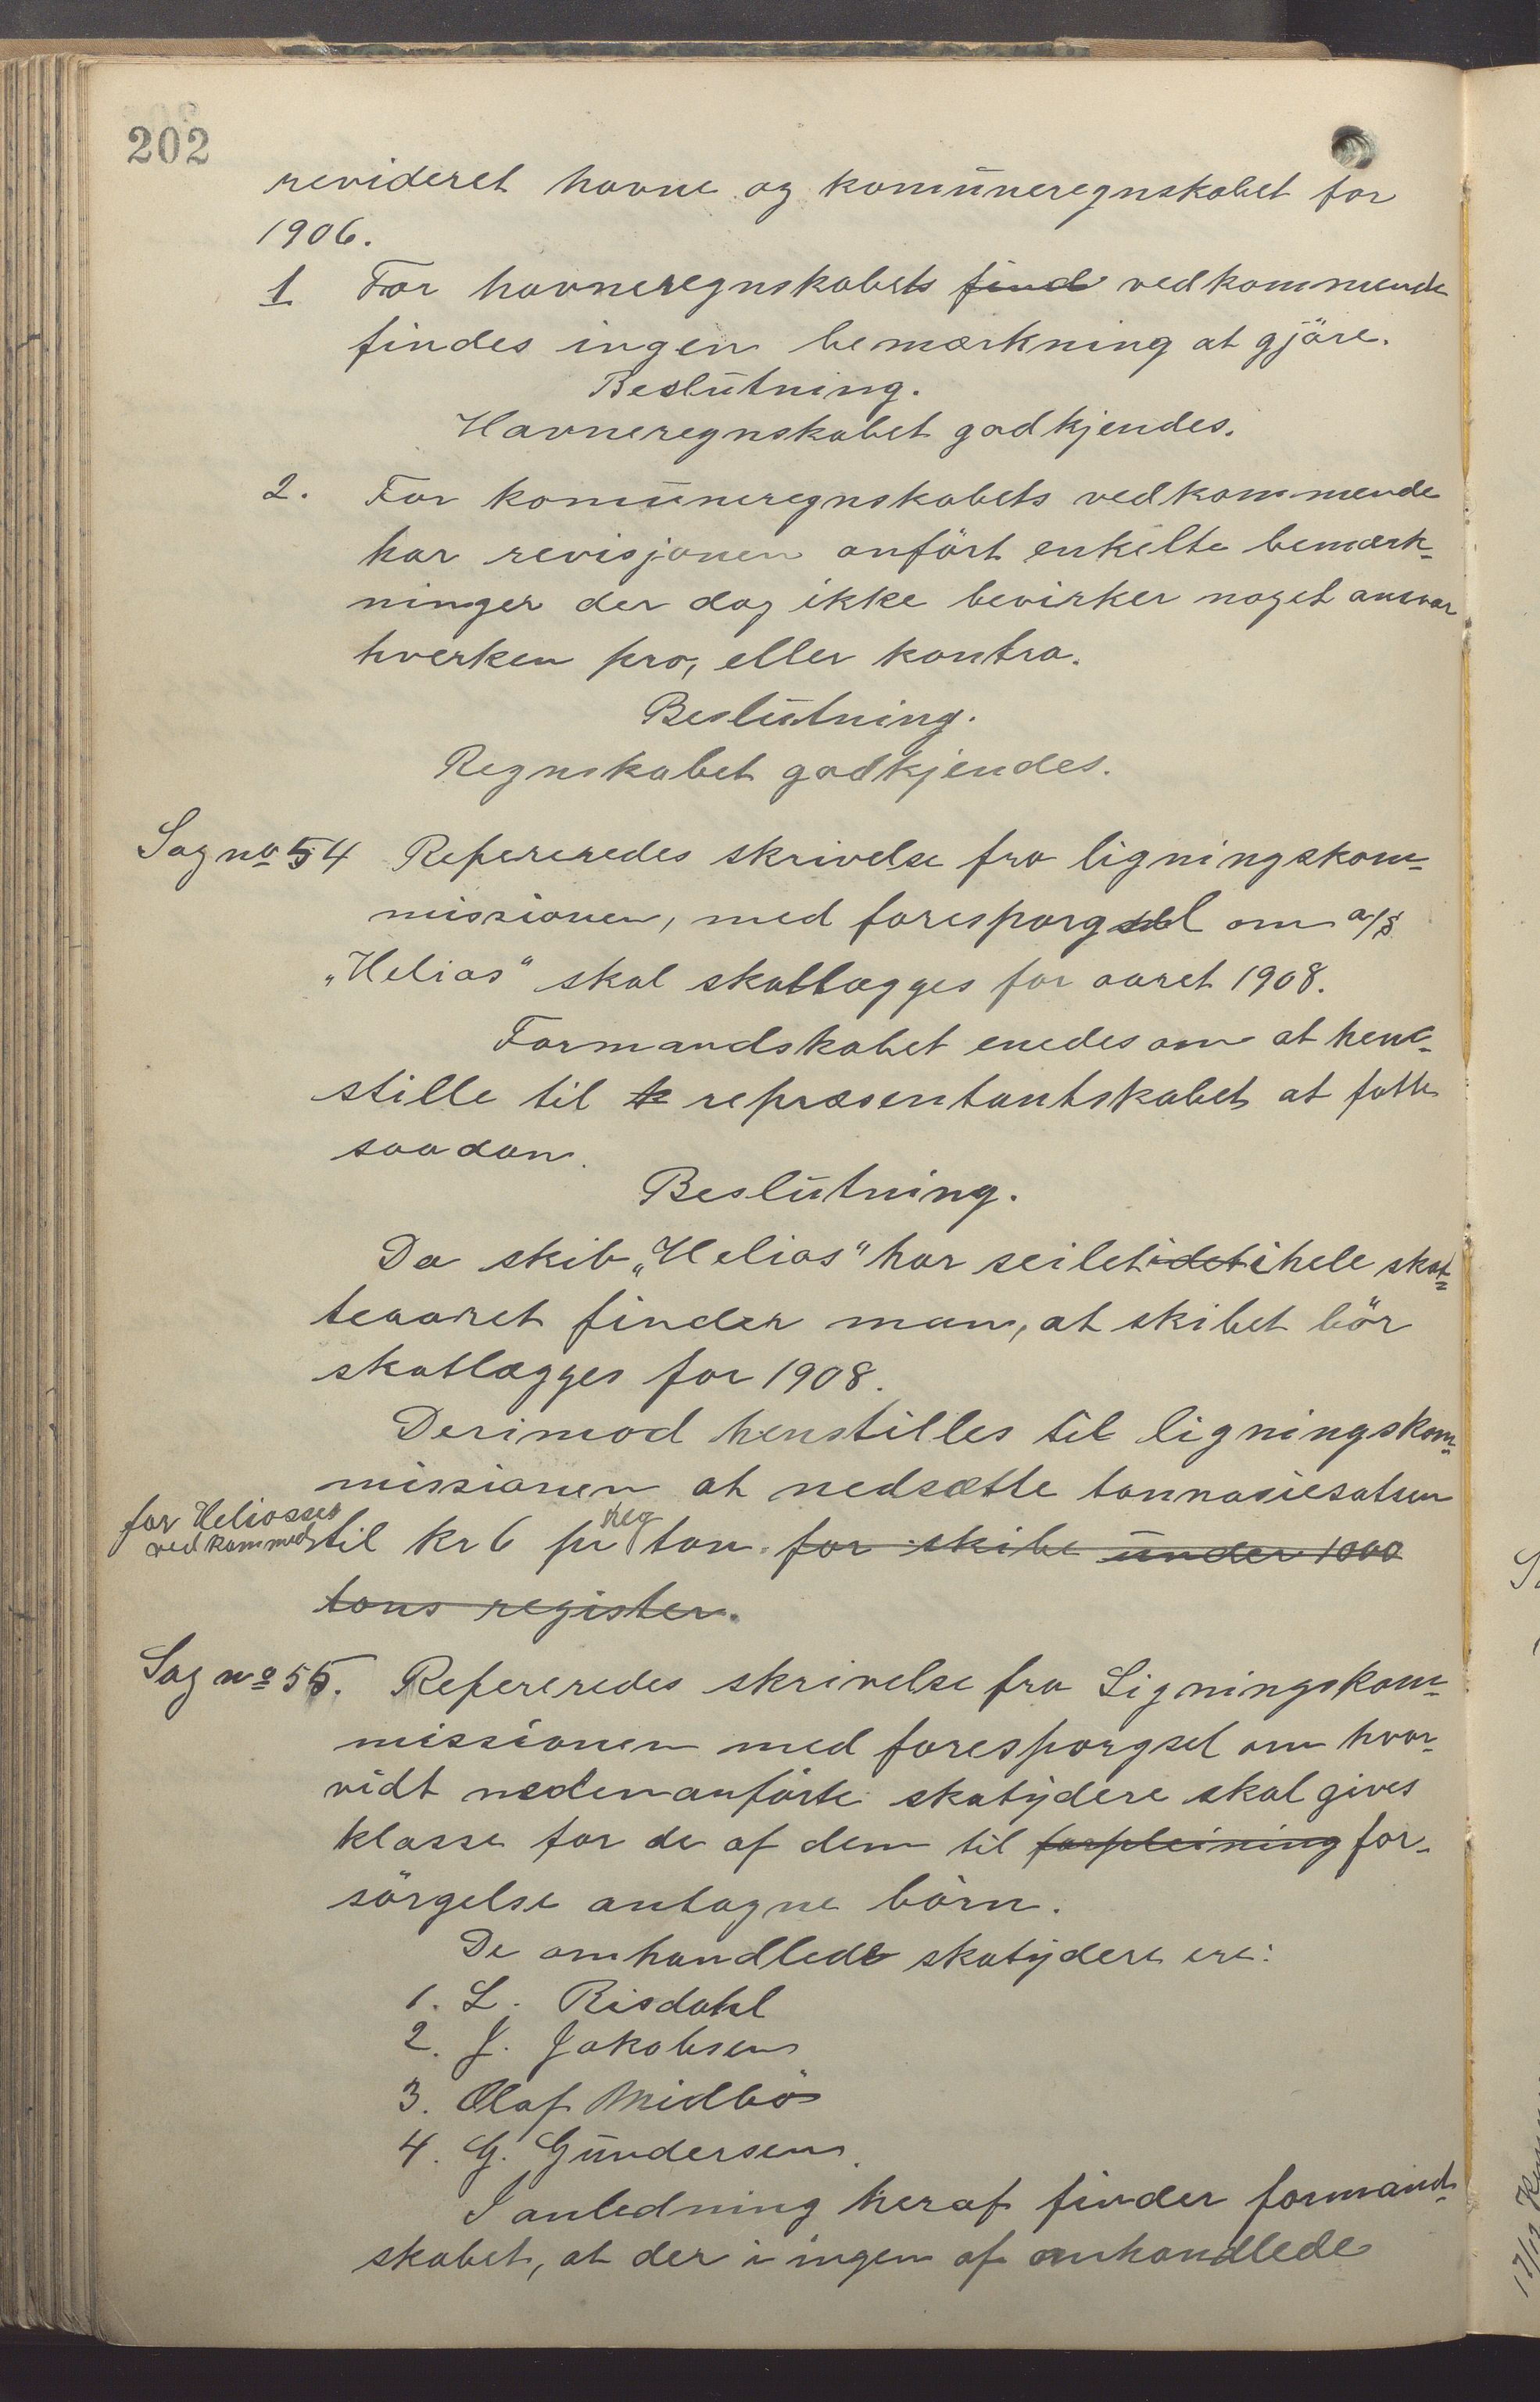 202
revideret havne og komūneregnskabet for
1906.
1 For havneregnskabets find vedkommende
findes ingen bemærkning at gjöre.
Beslūtning.
Havneregnskabet godkjendes.
2. For komūneregnskabets vedkommende
har revisjonen anfört enkelte bemærk-
ninger der dog ikke bevirker noget ansvar
hverken pro, eller kontra.
Beslūtning.
Regnskabet godkjendes.
Sag no 54 Refereredes skrivelse fra ligningskom-
missionen, med foresporgsel om a/s
„Helios" skal skatlægges for aaret 1908.
Formandskabet enedes om at hen-
stille til repræsentantskabet at fatte
saadan.
Beslūtning.
Da skib „Helios" har seilet idet i hele skat-
teaaret finder man, at skibet bör
skatlægges for 1908.
Derimod henstilles til ligningskom-
missionen at nedsætte tonnasiesatsen
for Heliosses
vedkommed til kr 6 pr reg ton. for skibe ūnder 1000
tons register.
Sag no 55. Refereredes skrivelse fra Ligningskom-
missionen med foresporgsel om hvor-
vidt nedenanförte skatydere skal gives
klasse for de af dem til forpleining for-
sörgelse antagne börn.
De omhandlede skatydere ere:
1. L. Risdahl
2. J. Jakobsen
3. Olaf Midbö
4. G. Gūndersen.
I anledning heraf finder formand-
skabet, at der i ingen af omhandlede